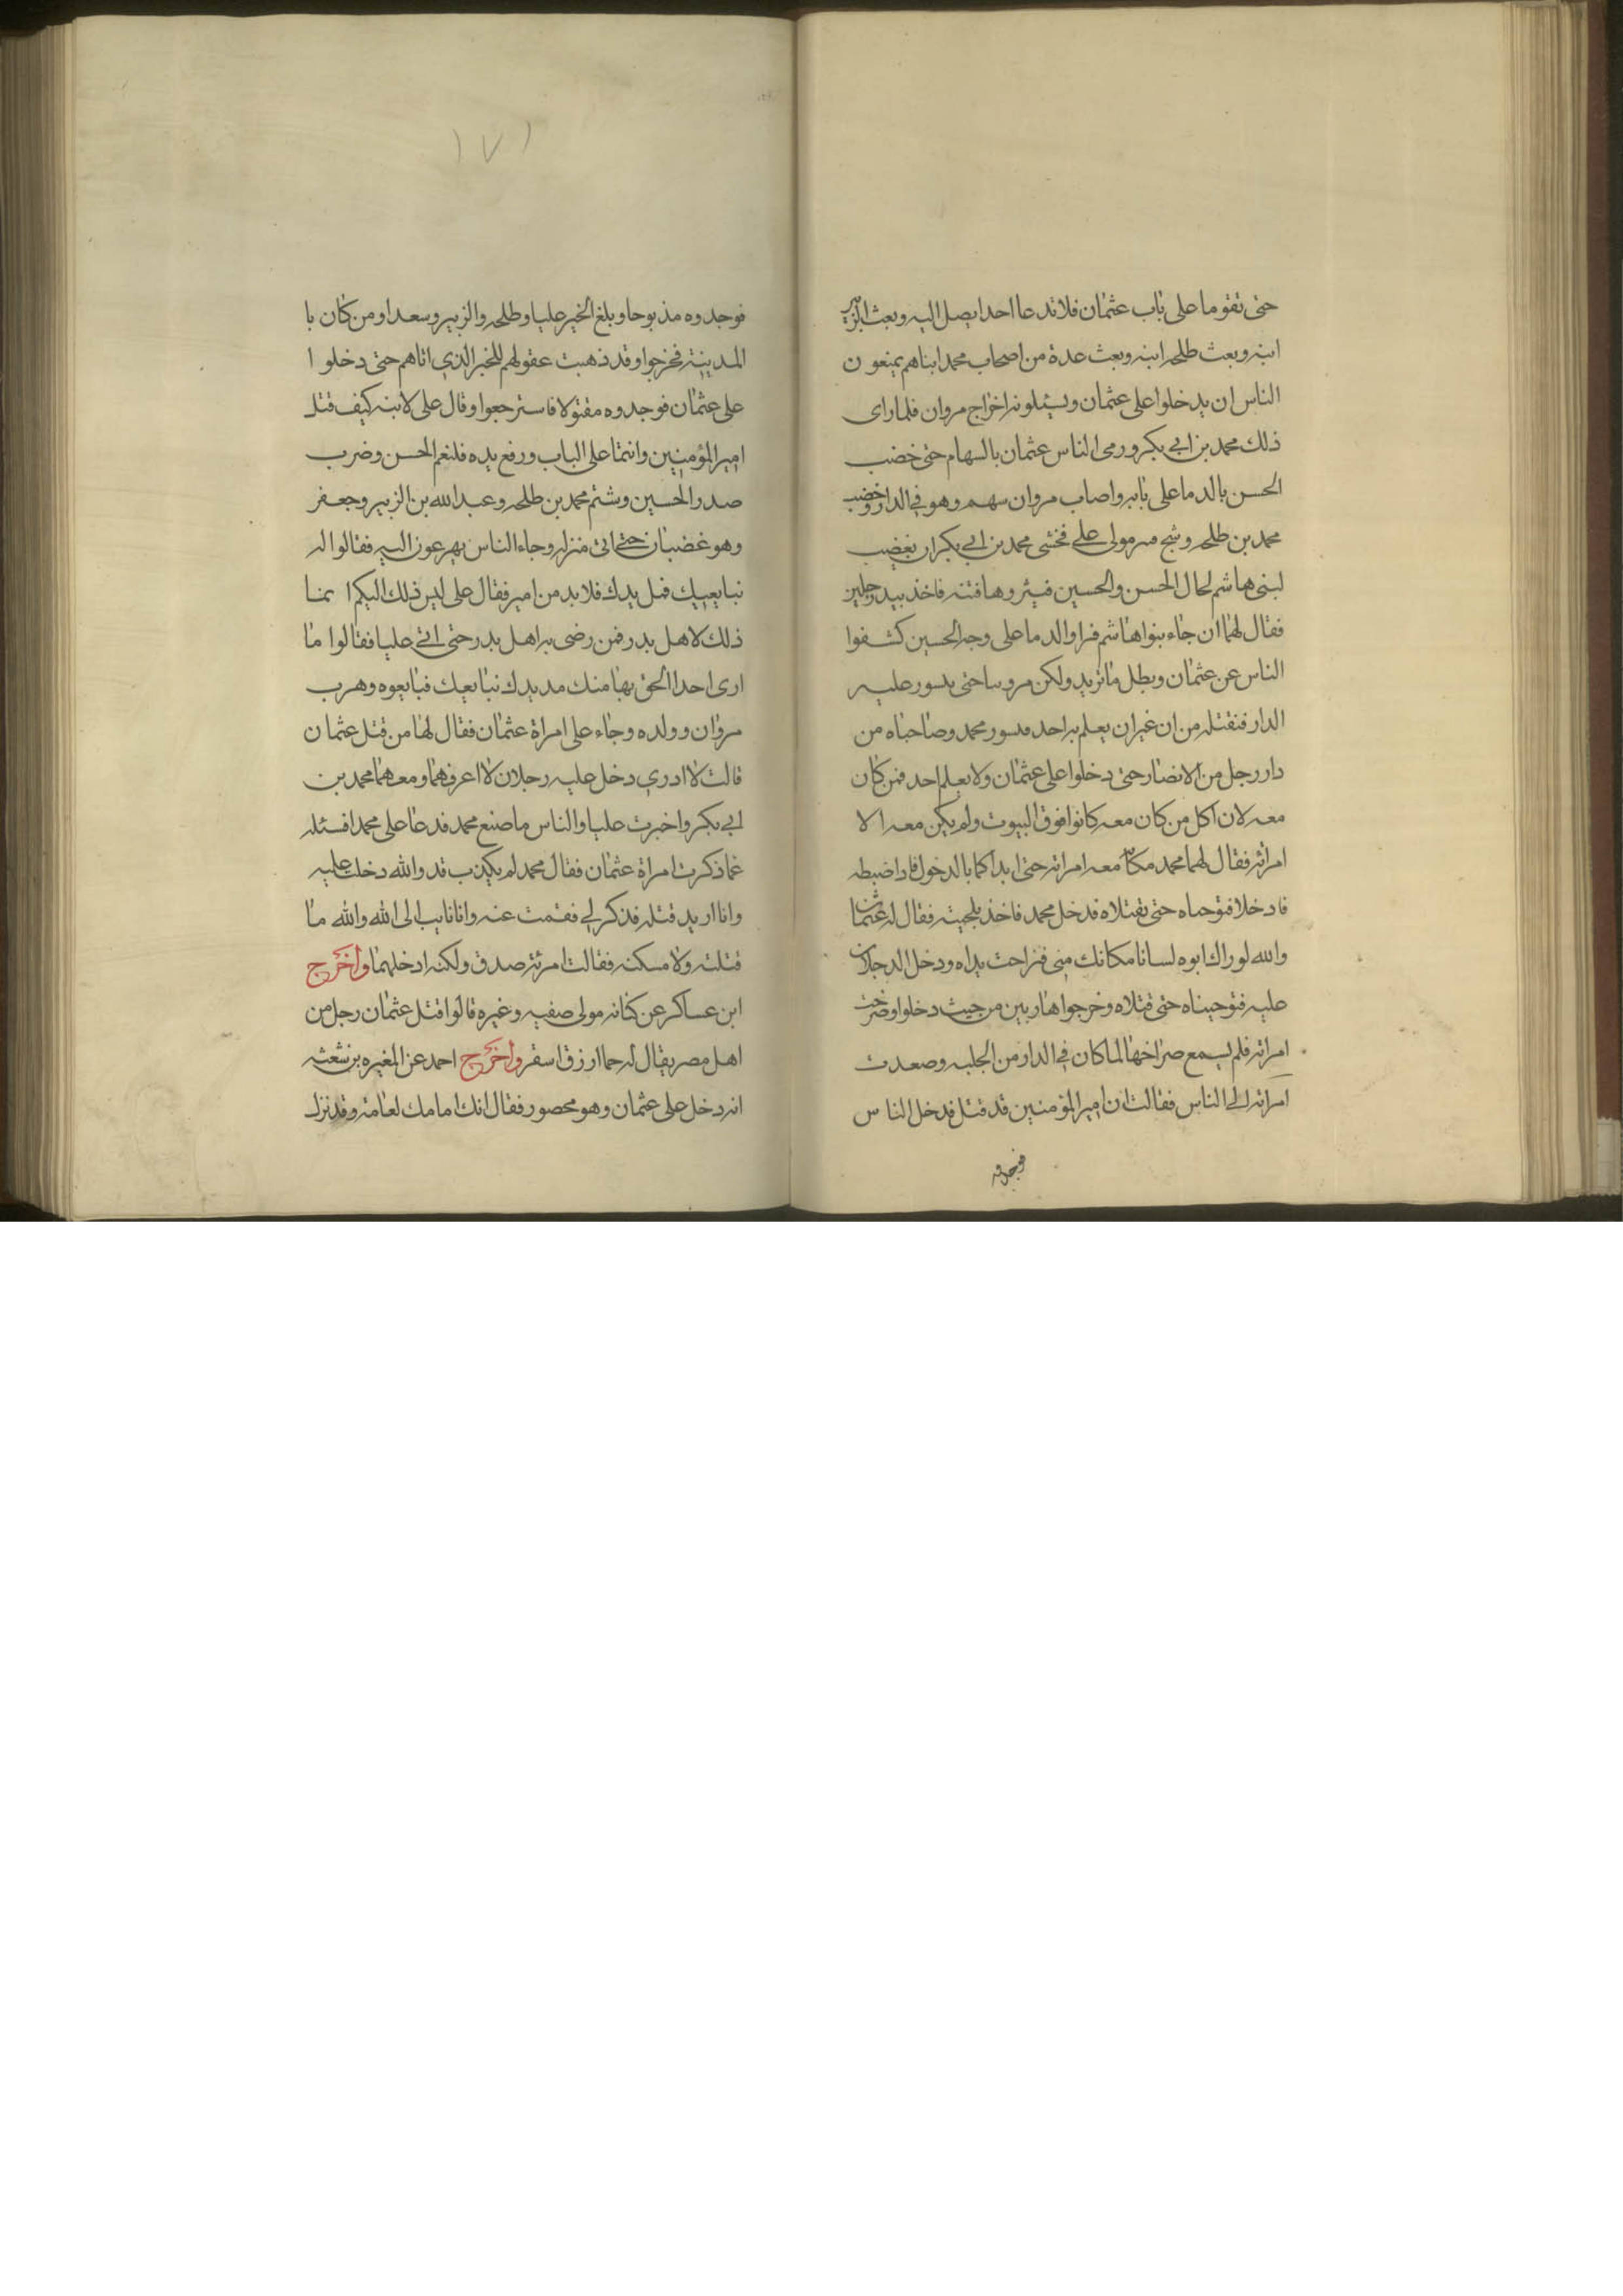 حتى تقوما على باب عثمان فلا تدعا احدا يصل اليه وبعث الزبير
ابنه وبعث طلحه ابنه وبعث عدة من اصحاب محمد ابناهم يمنعون
الناس ان يدخلوا على عثمان ويسئلونه اخراج مروان فلما راى
ذلك محمد بن ابي بكر ورمى الناس عثمان بالسهام حتى خضب
الحسن بالدما على بابه واصاب مروان سهم وهو في الدار وخضب
محمد بن طلحه وشج مولى على فخشى محمد بن ابي بكر ان يغضب
لبنى هاشم لحال الحسن والحسين فاخذ بيد
فقال لهما ان جاء بنوا هاشم فراوا الدما على وجه الحسين كشفوا
الناس عن عثمان وبطل ما نريد ولكن مروبنا حتى يسور عليه
الدار فنقتله من ان غير ان يعلم به احد فسور محمد وصاحباه من
دار رجل من الانصار حتى دخلوا على عثمان ولا يعلم احد فمن كان
معه لان اكل من كان معه كانوا فوق البيوت ولم يكن معه الا
امراته فقال لهما محمد معه امراته حتى ابداكما بالدخول
فادخلا فتوجاه حتى تقتلاه فدخل محمد فاخذ بلحيته فقال له عثمان
والله لو راك ابوه لسانا مكانك منى فتراحت يداه ودخل الدجلان
عليه فتوجيناه حتى قتلاه وخرجوا هاربين من حيث دخلوا وصرخت
امراته فلم يسمع صراخها لما كان في الدار من الجلبه وصعدت
امراته الى الناس فقالت ان امير المؤمنين قد قتل فدخل الناس
فوجدوه
١٧١
فوجدوه مذبوحا وبلغ الخبر عليا وطلحه والزبير وسعدا ومن كان با
المدينة فخرجوا وقد ذهبت عقولهم للخبر الذي اتاهم حتى دخلوا
على عثمان فوجدوه مقتولا فاسترجعوا وقال على لابنه كيف قتل
امير المؤمنين وانتما على الباب ورفع يده فلنغم الحسن وضرب
صدر الحسين وشتم محمد بن طلحه وعبد الله بن الزبير وجعفر
وهو غضبان حتى اتى منزله وجاء الناس يهرعون اليه فقالوا له
نبايعيك فمل يدك فلا بد من امير فقال على ليس ذلك اليكم انما
ذلك لاهل بدر فمن رضى به اهل بدر حتى اتى عليا فقالوا ما
ارى احدا الحق بها منك مد يدك نبايعيك فبايعوه وهرب
مروان وولده وجاء على امراة عثمان فقال لها من قتل عثمان
قالت لا ادري دخل عليه رجلان لا اعرفهما ومعهما محمد بن
ابي بكر واخبرت عليا والناس ما صنع محمد فدعا على محمدا فسئله
عما ذكرت امراة عثمان فقال محمد لم يكذب قد والله دخلت عليه
وانا اريد قتله فذكر لي فقمت عنه وانا نايب الى الله والله ما
قتلته ولا مسكنه فقالت امرئته صدق ولكنه ادخلهما واخرج
ابن عساكر عن كنانه مولى صفيه وغيره قالوا قتل عثمان رجل من
اهل مصر يقال له حما ارزق اسقر واخرج احمد عن المغيره بن شعثه
انه دخل على عثمان وهو محصور فقال انك امامك لعامة وقد نزل